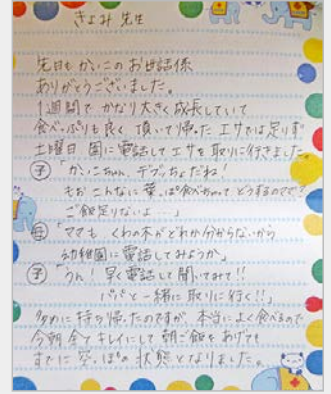 きよみ 先生
先日も かいこの お世話係
ありがとうございました。
1週間で かなり大きく成長していて
食べっぷりも良く 頂いて帰った エサでは足りず
土曜日 園に電話して エサを 取りに行きました。
子「かいこちゃん、デブッちょだね!
もお こんなに 葉っぱ食べちゃって どうするのママ?
ご飯足りないよ……」
母「ママも くわの木が どれか分からないから
幼稚園に 電話してみようか」
子「うん! 早く電話して 聞いてみて!!
パパと一緒に 取りに行く!!」
多めに 持ち帰ったのですが、本当に よく食べるので
今朝 全て キレイにして 朝ご飯を あげても
すでに 空っぽの 状態と なりました。